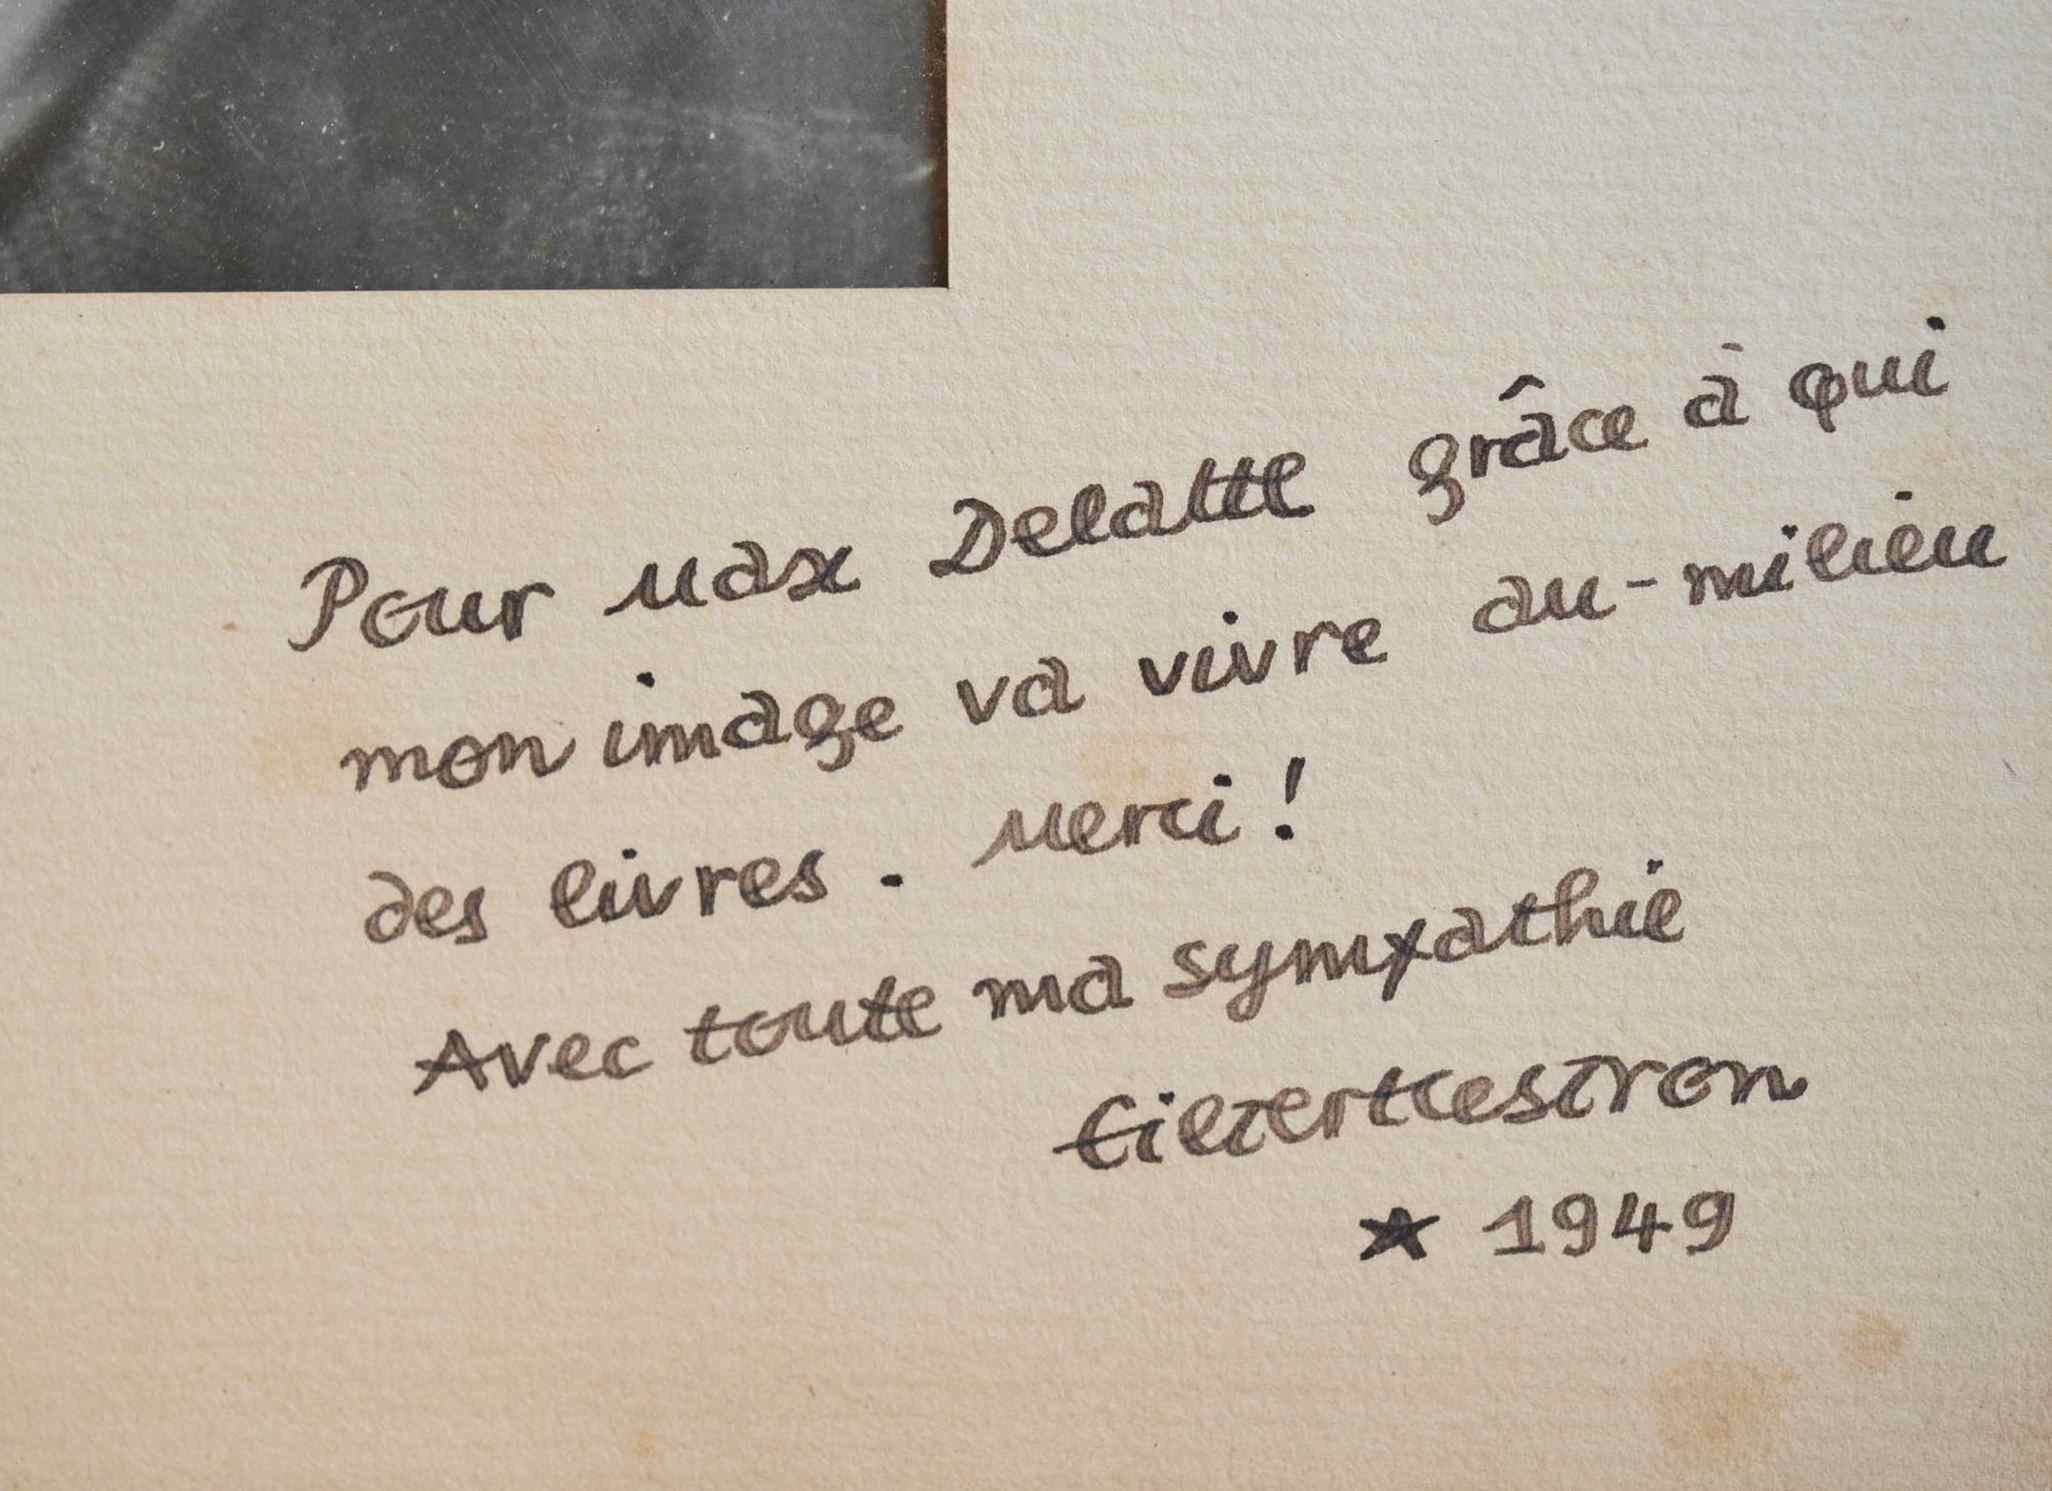 Pour Max Delatte grâce à qui
mon image va vivre au-milieu
des livres. Merci!
Avec toute ma sympathie
★ 1949